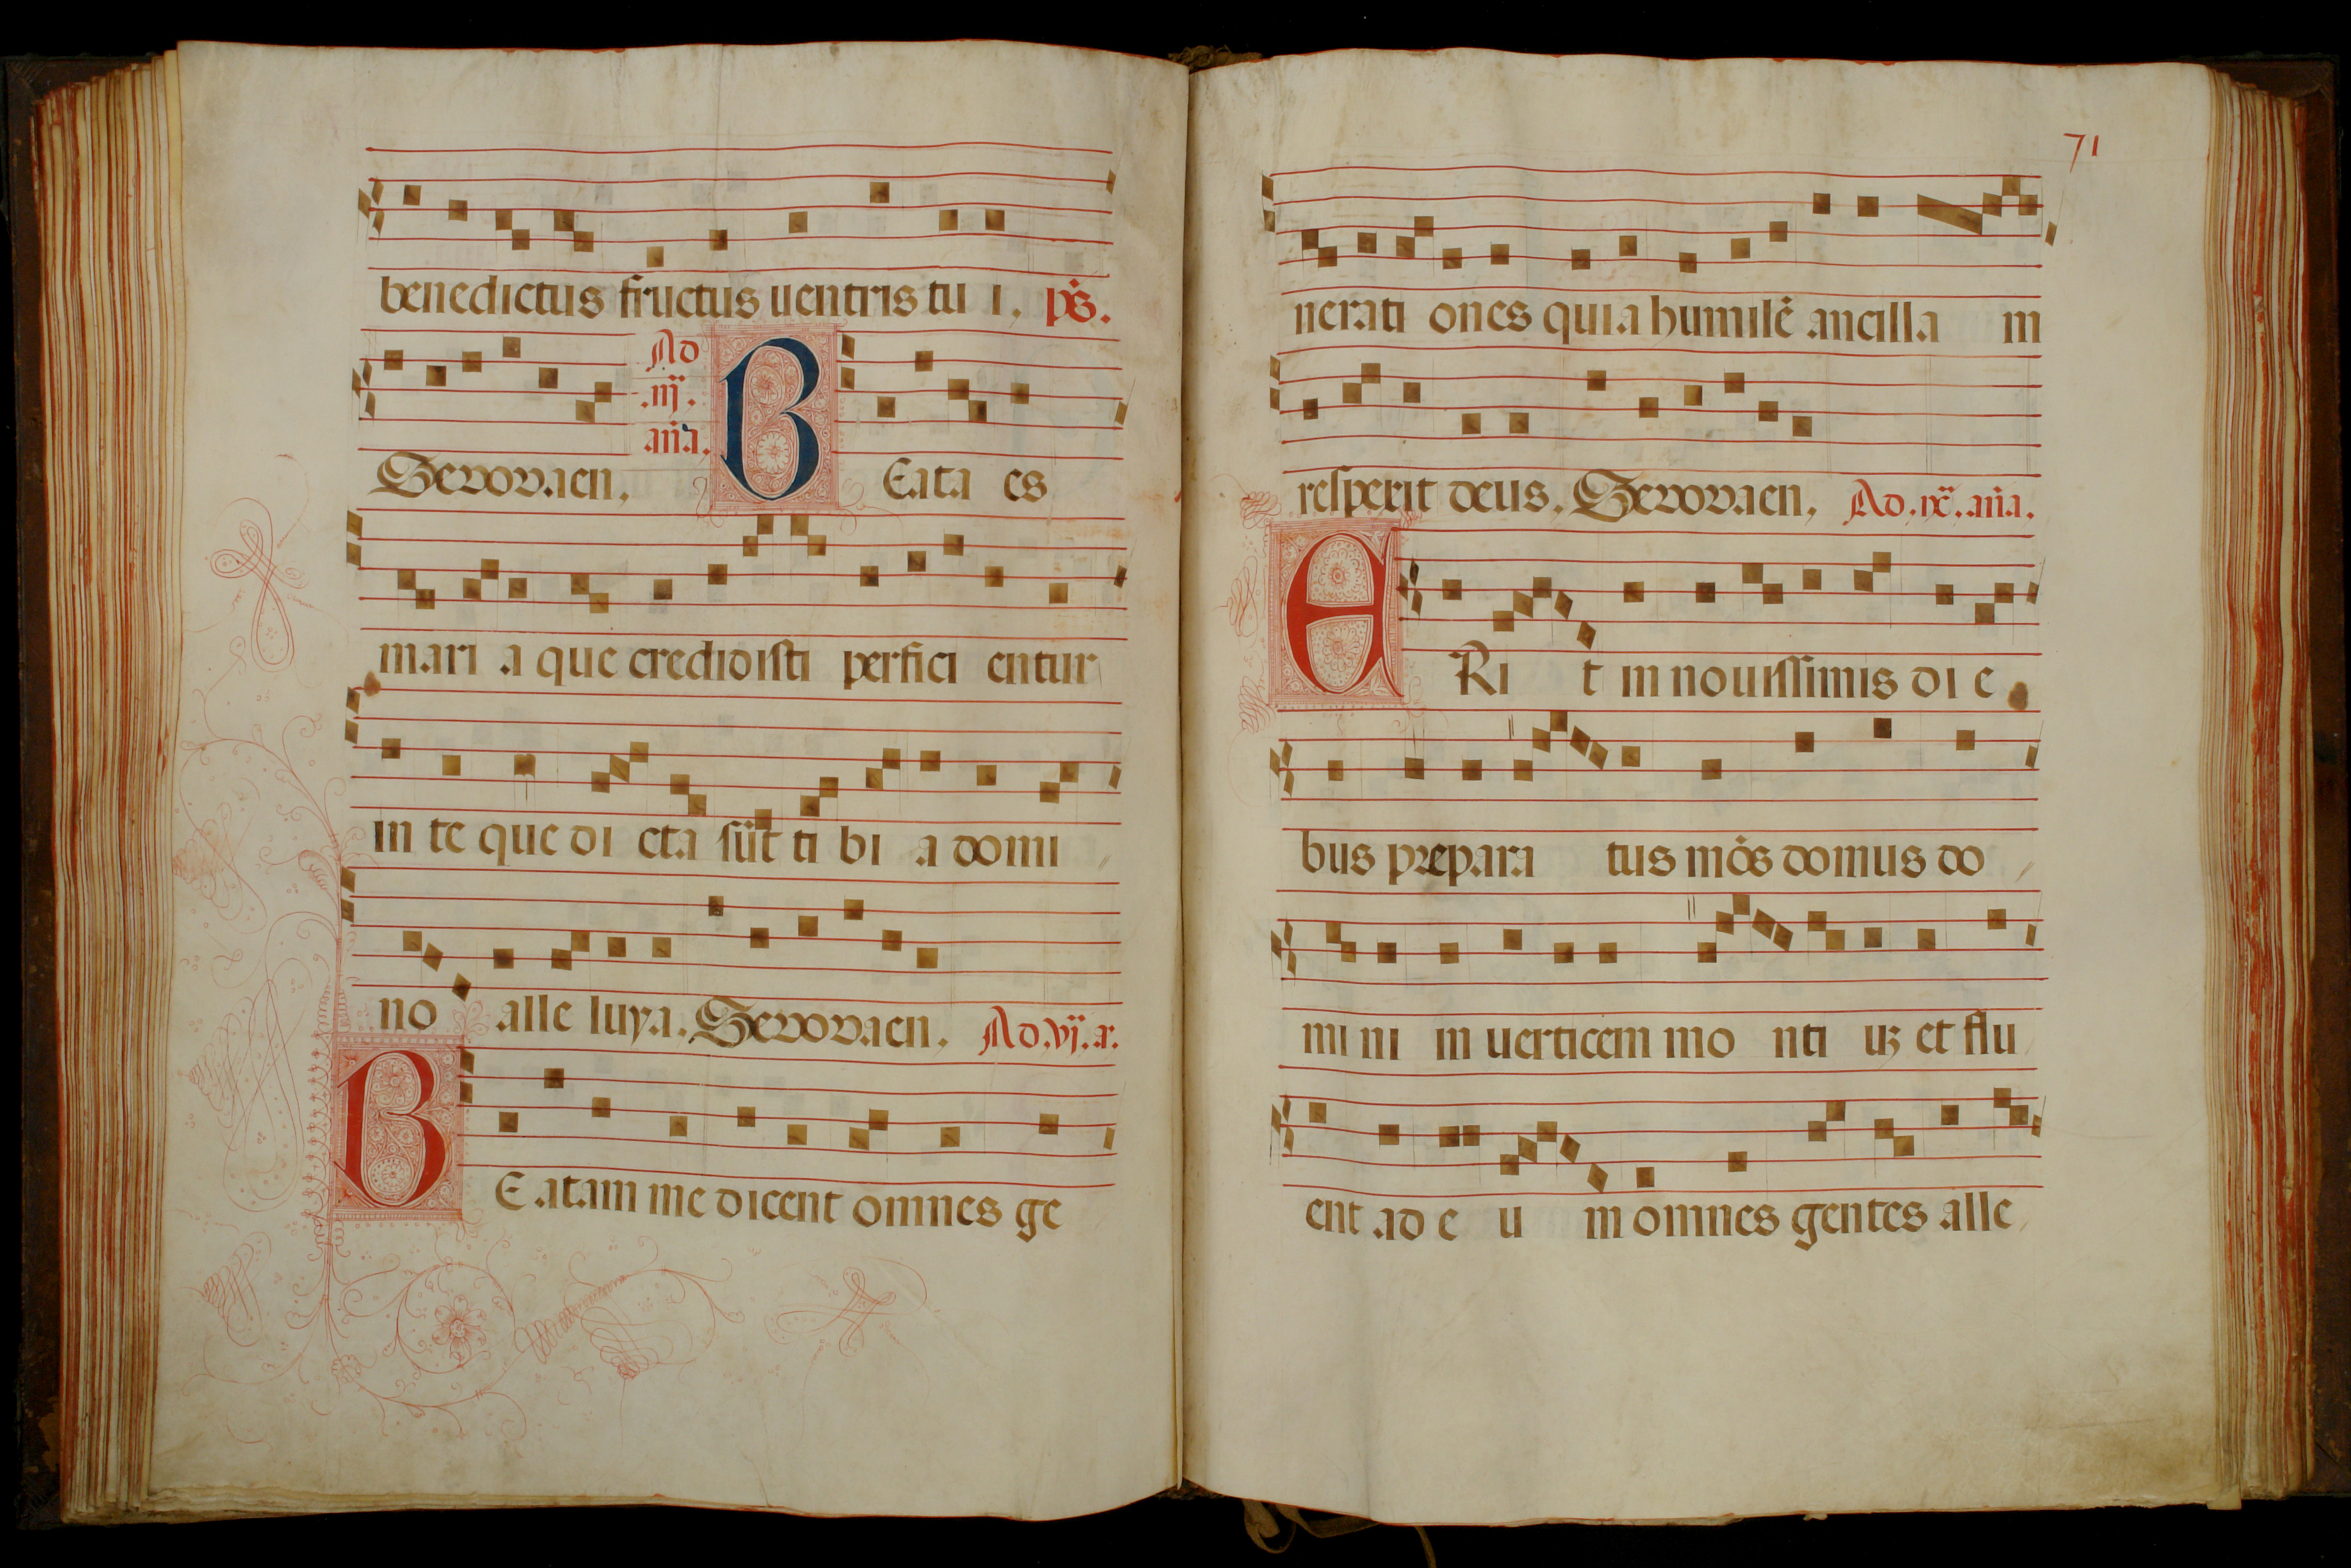 benedictus fructus uentris tu i. ps̄.
Ad
.iij.
añ̄a.
Seuouaen. B Eata es
mari a que credidisti perfici entur
in te que di cta sūt ti bi a domi
no alle luya. Seuouaen. Ad.vj.a.
B E atam me dicent omnes ge
71
nerati ones quia humilē ancilla m
respexit deus. Seuouaen. Ad.ix.añ̄a.
E Ri t in nouissimis di e
bus prepara tus mōs domus do
mi ni in uerticem mo nti uꝫ et flu
ent ad e u m omnes gentes alle